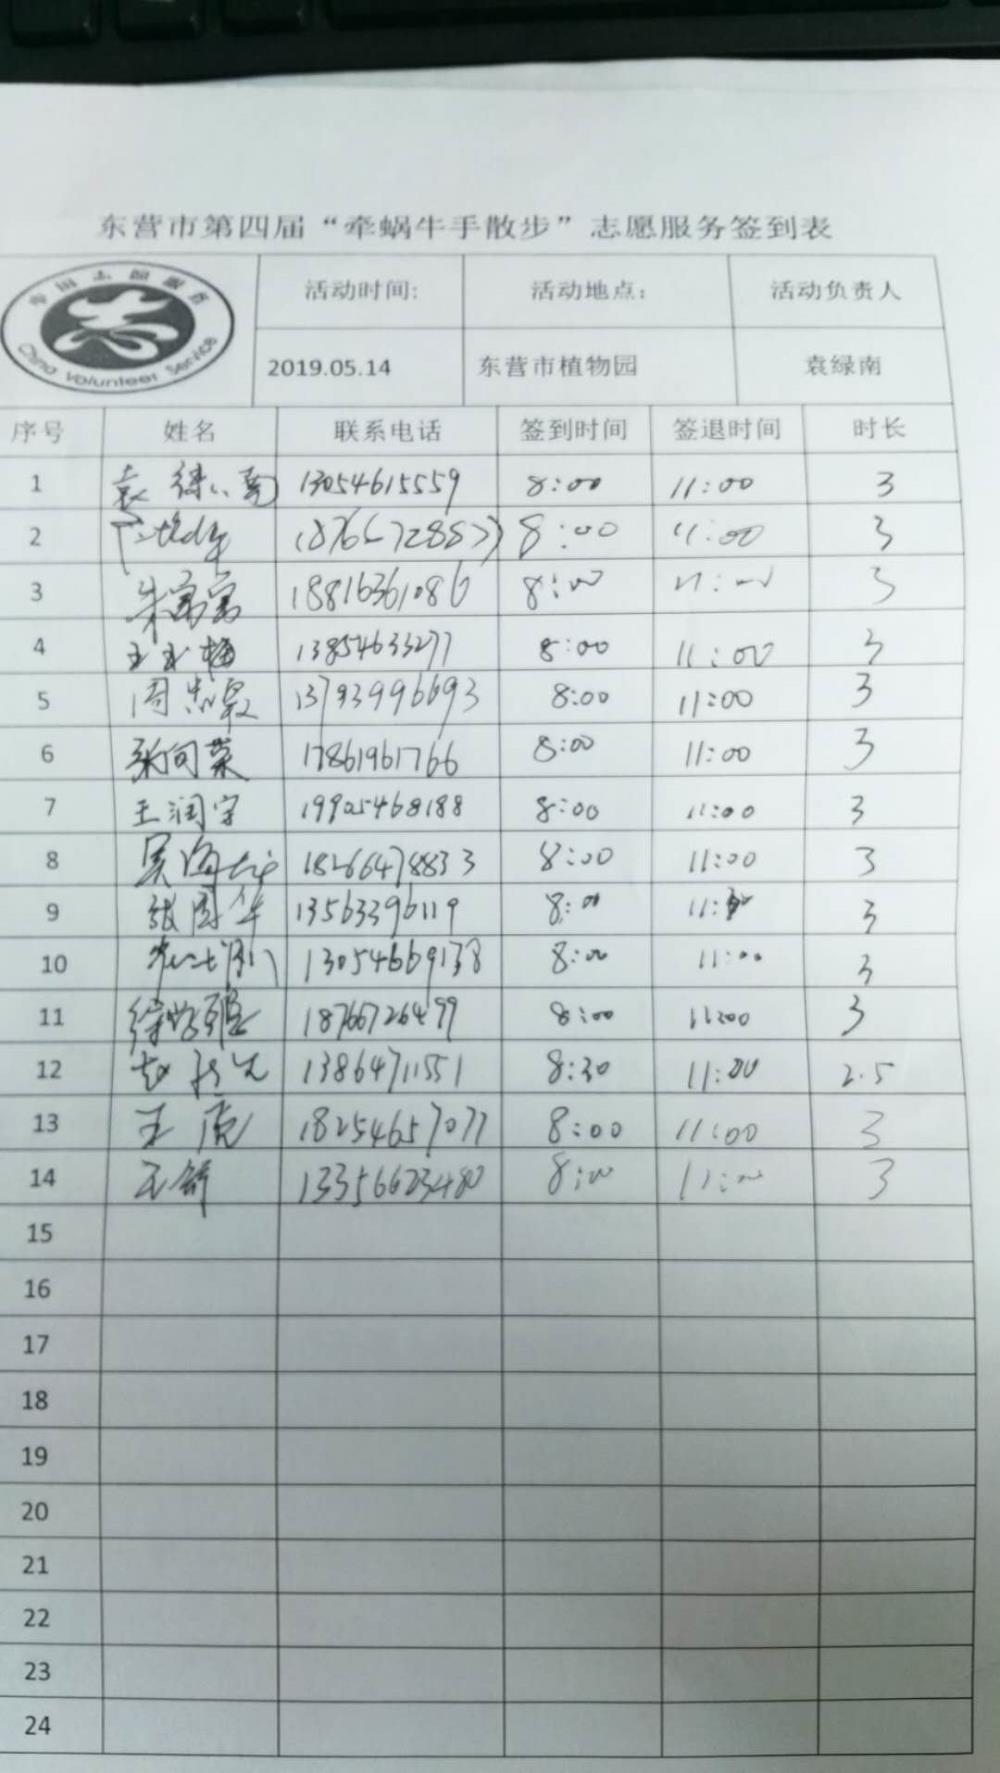 东营市第四届“牵蜗牛手散步”志愿服务签到表
中国志愿服务
China Volunteer Service
活动时间: 活动地点: 活动负责人
2019.05.14 东营市植物园 袁绿南
序号 姓名 联系电话 签到时间 签退时间 时长
1 袁绿南 13054615559 8:00 11:00 3
2 8:00 11:00 3
3 朱富富 18816361086 8:00 11:00 3
4 王玉梅 13854633277 8:00 11:00 3
5 周忠泉 13793996693 8:00 11:00 3
6 张向荣 17861961766 8:00 11:00 3
7 王润宇 19905468188 8:00 11:00 3
8 18266478833 8:00 11:00 3
9 张国华 13563396119 8:00 11: 3
10 13054669138 8:00 11:00 3
11 18766726499 8:00 11:00 3
12 赵 13864711551 8:30 11:00 2.5
13 王虎 18254657077 8:00 11:00 3
14 王 13356623480 8:00 11:00 3
15
16
17
18
19
20
21
22
23
24